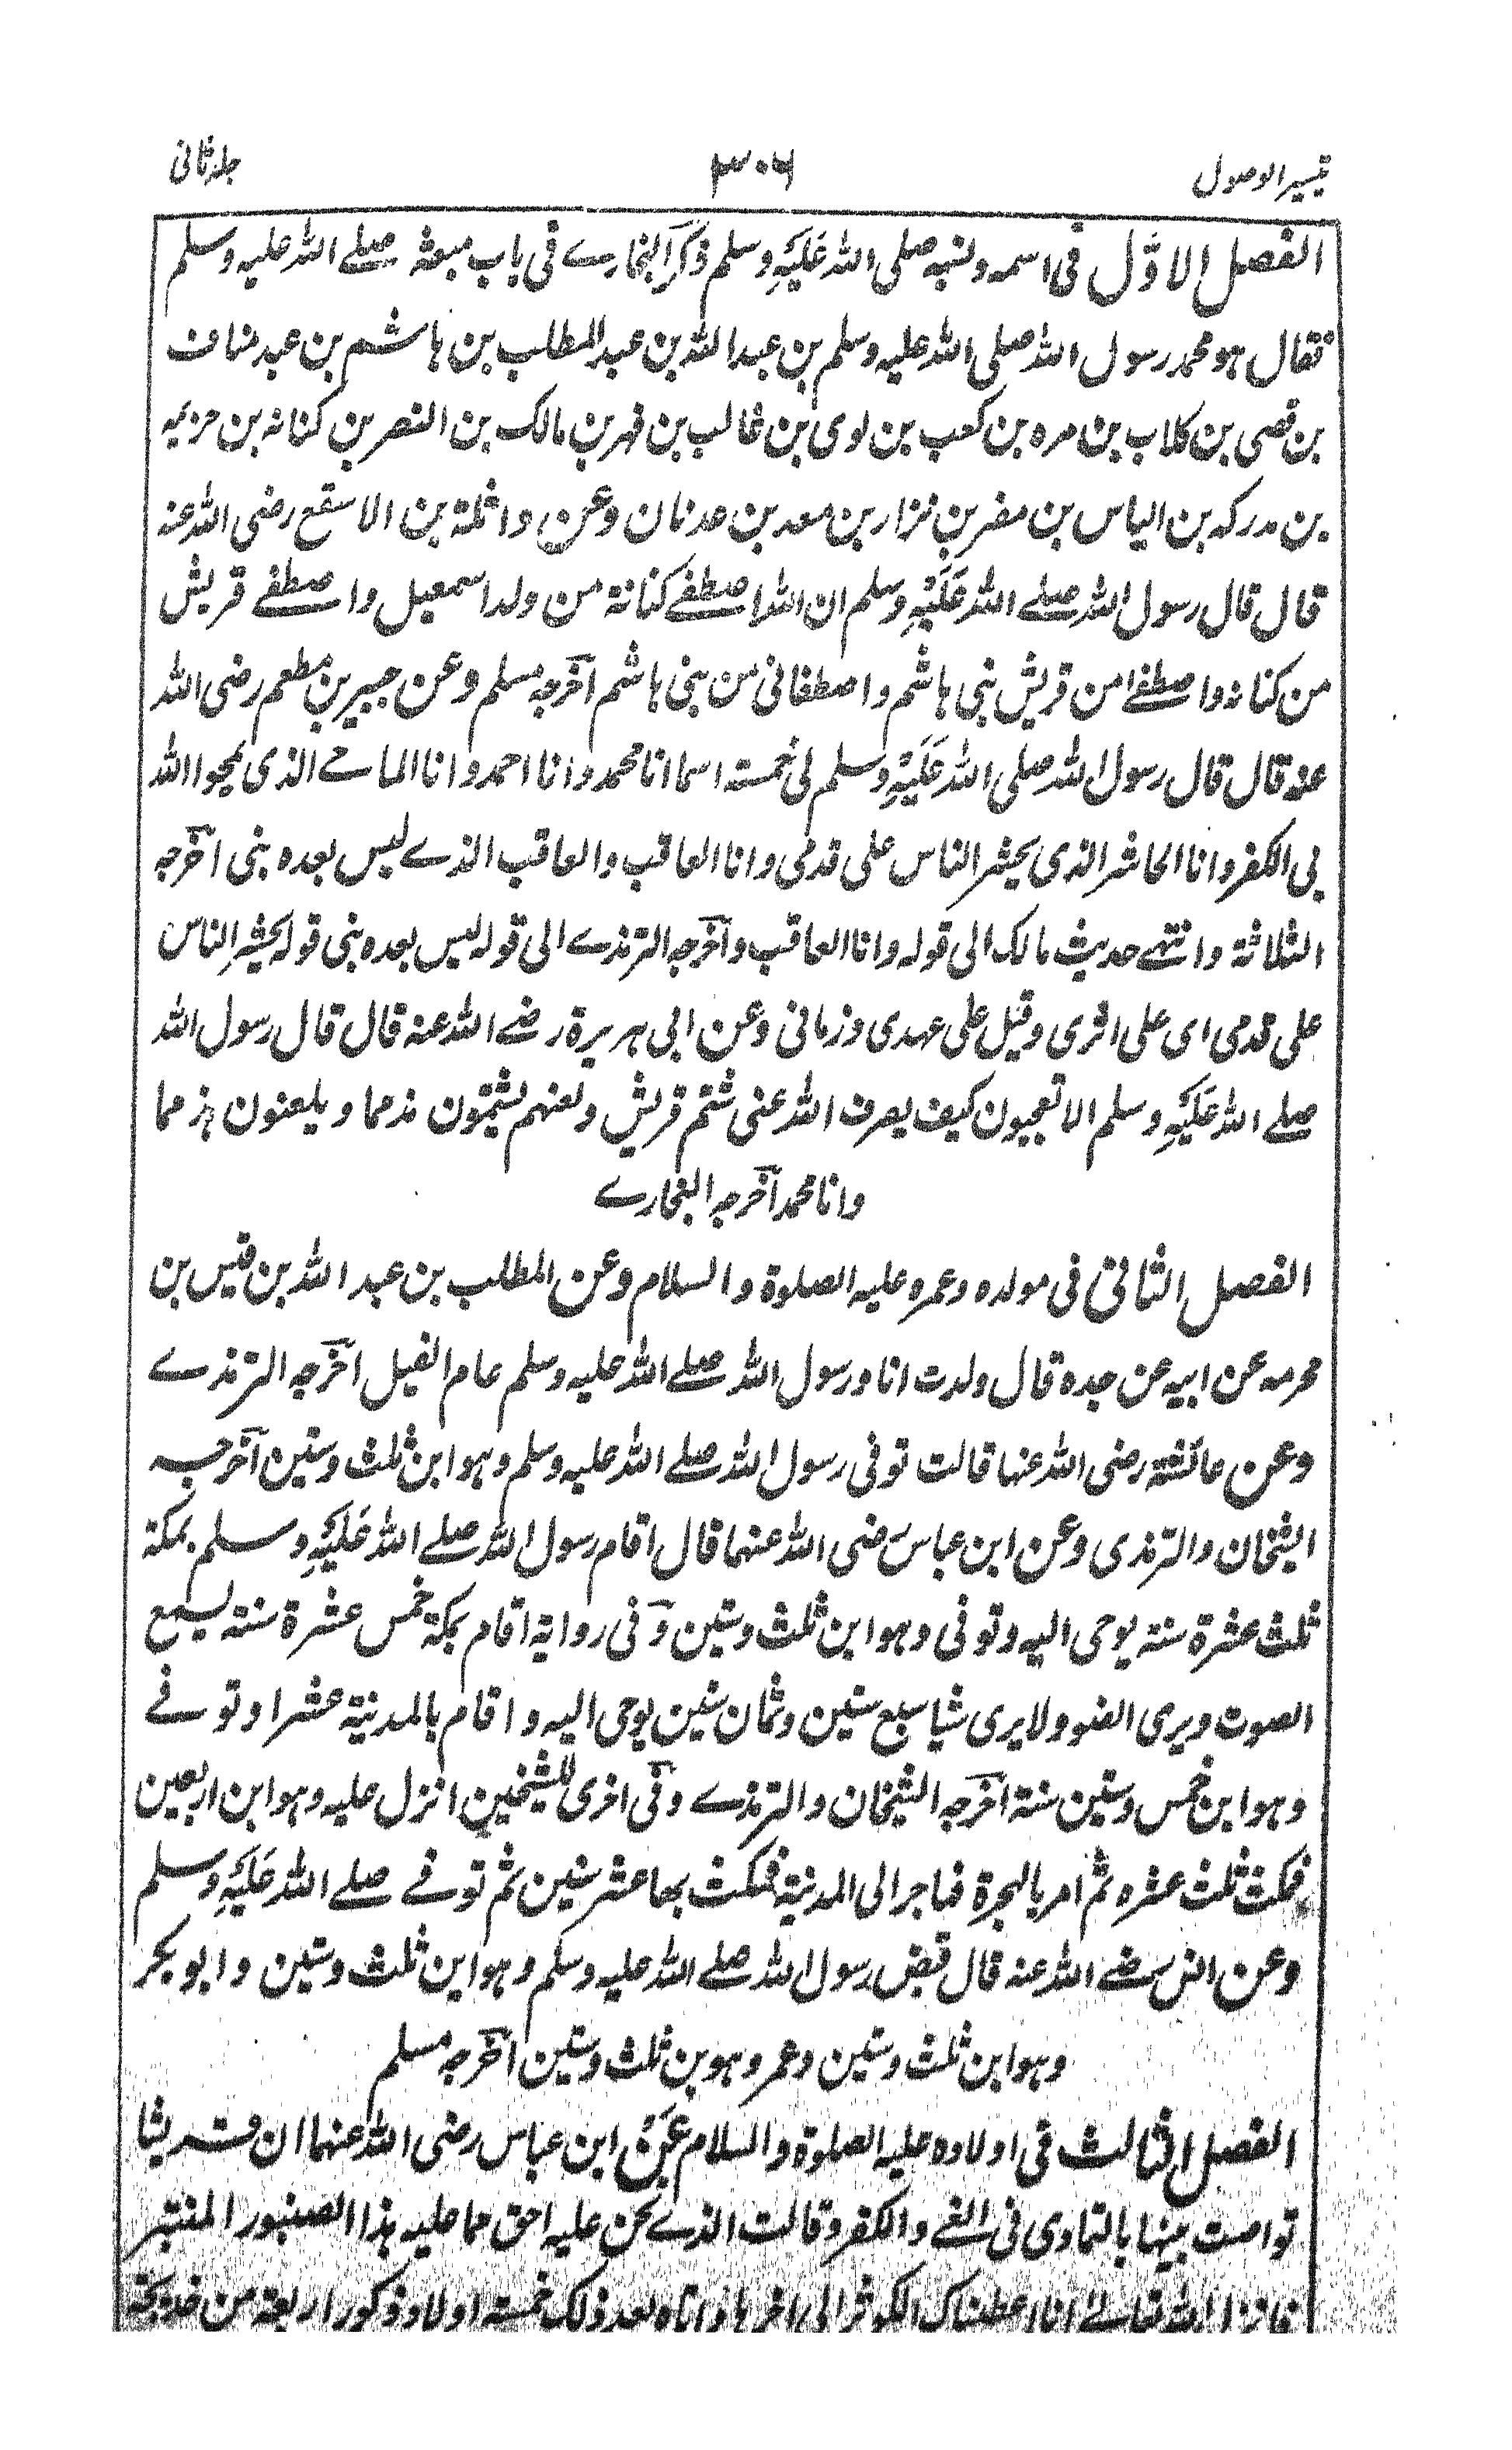 تيسير الوصول ٣٠٦ جلد ثانی
الفصل الاوّل فی اسمه ونسبه صلی الله عَلَيْهِ وسلم ذكر البخارے فی باب مبعثه صلے الله علیه وسلم
فقال هو محمد رسول الله صلی الله علیه وسلم بن عبد الله بن عبد المطلب بن هاشم بن عبد مناف
بن قصی بن كلاب بن مره بن كعب بن لوی بن غالب بن فهر بن مالك بن النضر بن كنانه بن خزیمه
بن مدركه بن الیاس بن مضر بن نزار بن معد بن عدنان وعن واثلة بن الاسقع رضی الله عنه
قال قال رسول الله صلے الله عَلَيْهِ وسلم ان الله اصطفے كنانة من ولد اسمعیل واصطفے قریش
من كنانة واصطفے من قریش بنی هاشم واصطفانی من بنی هاشم آخرجه مسلم وعن جبیر بن مطعم رضی الله
عنه قال قال رسول الله صلی الله عَلَيْهِ وسلم لی خمسته اسما انا محمد وانا احمد وانا الماحے الذی یمحوا الله
بی الكفر وانا الحاشر الذی یحشر الناس علی قدمی وانا العاقب والعاقب الذے لیس بعده نبی آخرجه
الثلاثة وانتهے حدیث مالك الی قوله وانا العاقب وآخرجه الترمذے الی قوله لیس بعده نبی قوله یحشر الناس
علی قدمی ای علی اثری وقیل علی عهدی وزمانی وعن ابی هریرة رضے الله عنه قال قال رسول الله
صلے الله عَلَيْهِ وسلم الا تعجبون كیف یصرف الله عنی شتم قریش ولعنهم یشتمون مذمما ویلعنون مذمما
وانا محمد آخرجه البخارے
الفصل الثانی فی مولده وعمره علیه الصلوة والسلام وعن المطلب بن عبد الله بن قیس بن
مخرمه عن ابیه عن جده قال ولدت انا ورسول الله صلے الله علیه وسلم عام الفیل آخرجه الترمذے
وعن عائشة رضی الله عنها قالت توفی رسول الله صلے الله علیه وسلم وهو ابن ثلث وستین آخرجه
الشیخان والترمذی وعن ابن عباس رضی الله عنهما قال اقام رسول الله صلے الله عَلَيْهِ وسلم بمكة
ثلث عشرة سنة یوحی الیه وتوفی وهو ابن ثلث وستین وَفی روایة اقام بمكة خمس عشرة سنة یسمع
الصوت ویری الضوء ولا یری شیا سبع سنین وثمان سنین یوحی الیه واقام بالمدینة عشرا وتوفے
وهو ابن خمس وستین سنة آخرجه الشیخان والترمذے وفی اخری للشیخین انزل علیه وهو ابن اربعین
فمكث ثلث عشره ثم امر بالهجرة فهاجر الی المدینة فمكث بها عشر سنین ثم توفے صلے الله عَلَيْهِ وسلم
وعن انس رضے الله عنه قال قبض رسول الله صلے الله علیه وسلم وهو ابن ثلث وستین وابو بكر
وهو ابن ثلث وستین وعمر وهو بن ثلث وستین آخرجه مسلم
الفصل الثالث فی اولاده علیه الصلوة والسلام عَنْ ابن عباس رضی الله عنهما ان قریشا
تواصت بینها بالتمادی فی الغے والكفر وقالت الذے نحن علیه احق مما علیه هذا الصنبور المنبتر
فانزل الله تعالے انا اعطیناك الكوثر الی اخرها واتاه بعد ذلك خمسته اولاد ذكور اربعة من خدیجة